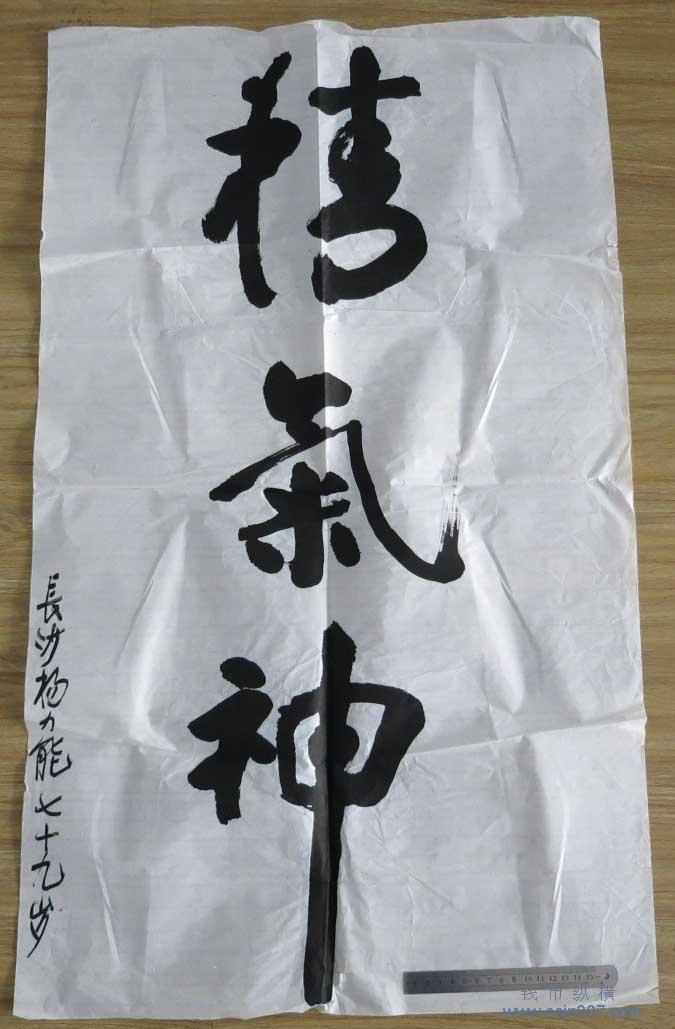 精氣神
長沙杨力能七十九岁
钱币纵横
www.coin007.com